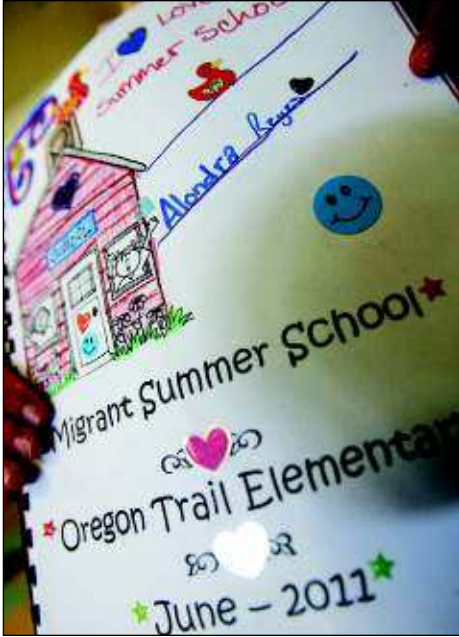 I Love
Summer School
Alondra Reyes
SCHOOL
Migrant Summer School
Oregon Trail Elementar
June – 2011